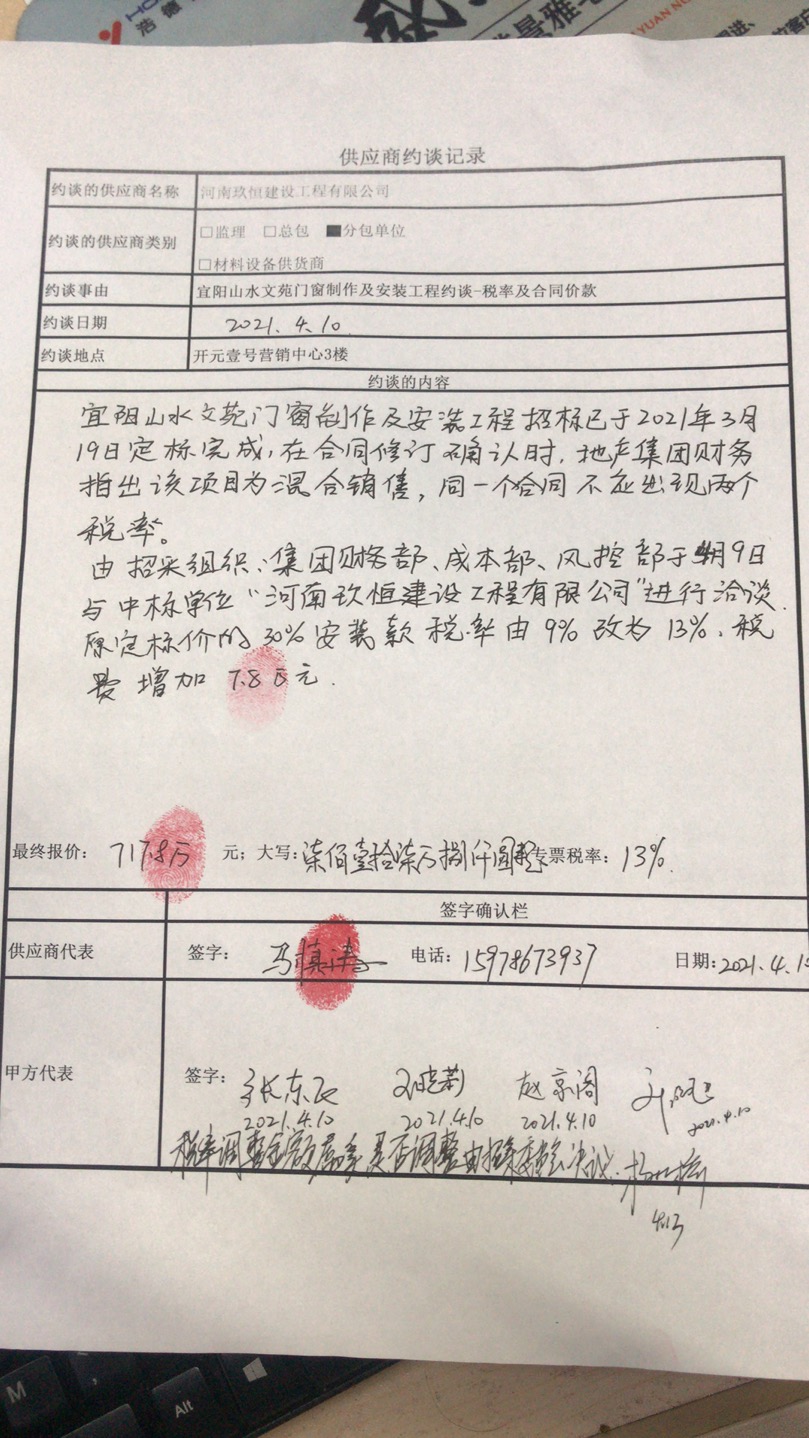 浩德
YUAN NO
供应商约谈记录
约谈的供应商名称 河南玖恒建设工程有限公司
约谈的供应商类别 □监理 □总包 ■分包单位
□材料设备供货商
约谈事由 宜阳山水文苑门窗制作及安装工程约谈-税率及合同价款
约谈日期 2021.4.10
约谈地点 开元壹号营销中心3楼
约谈的内容
宜阳山水文苑门窗制作及安装工程招标已于2021年3月
19日定标完成,在合同修订确认时,地产集团财务
指出该项目为混合销售,同一个合同不应出现两个
税率。
由招采组织:集团财务部、成本部、风控部于4月9日
与中标单位"河南玖恒建设工程有限公司"进行洽谈.
原定标价的30%安装款税率由9%改为13%.税
费增加7.8万元.
最终报价: 717.8万 元; 大写: 柒佰壹拾柒万捌仟圆整 专票税率: 13%.
签字确认栏
供应商代表 签字: 马慎涛 电话: 15978673937 日期: 2021.4.1
甲方代表 签字: 张东民 赵京阁
2021.4.10 2021.4.10 2021.4.10 2021.4.10
税率调整金额属实 是否调整由招采委员会决议.
4.13
M
Alt